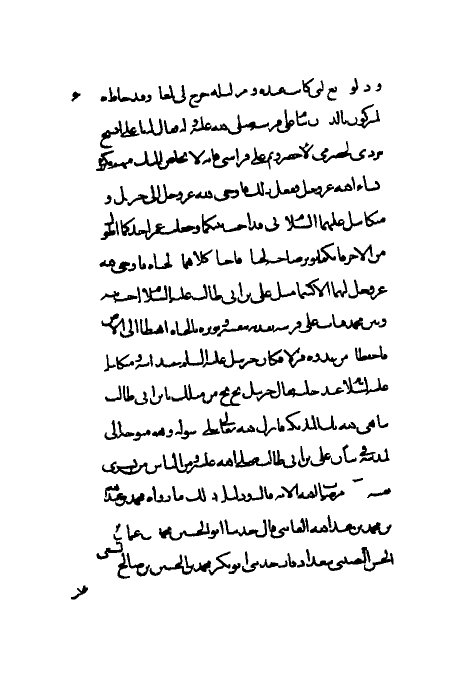 خرج الى الغار وقد احاط
المشركون بالدار على صلى الله عليه فقال له يا علي اتشح
ببردي الحضرمي الاخضر ونم على فراشي فانه لا يخلص اليك منهم مكروه
شاء الله عز وجل ففعل ذلك فاوحى الله عز وجل الى جبريل و
ميكائيل عليهما السلام اني قد اخيت بينكما وجعلت عمر احدكما اطول
من الاخر فايكما يوثر صاحبه كلاهما الحياه فاوحى الله
عز وجل اليهما الا كنتما مثل علي بن ابي طالب عليه السلام اخيت بينه
وبين محمد فبات على فرشه يفديه بنفسه ويوثره بالحياه اهبطا الى الارض
فاحفظاه من عدوه فنزلا فكان جبريل عليه السلام عند راسه وميكائيل
عليه السلام عند رجليه فقال جبريل بخ بخ من مثلك يا ابن ابي طالب
يباهي الله بك الملائكه فانزل الله تعالى على رسوله وهو متوجه الى
المدينه في شان علي بن ابي طالب صلى الله عليه ومن الناس من يشري
نفسه مرضات الله الايه قال ودليل ذلك ما رواه محمد بن عبد الله
بن محمد بن عبد الله القاسي قال حدثنا ابو الحسين محمد بن عثمان بن
الحسن النصيبي ببغداد قال حدثني ابو بكر محمد بن الحسين بن صالح السبيعي